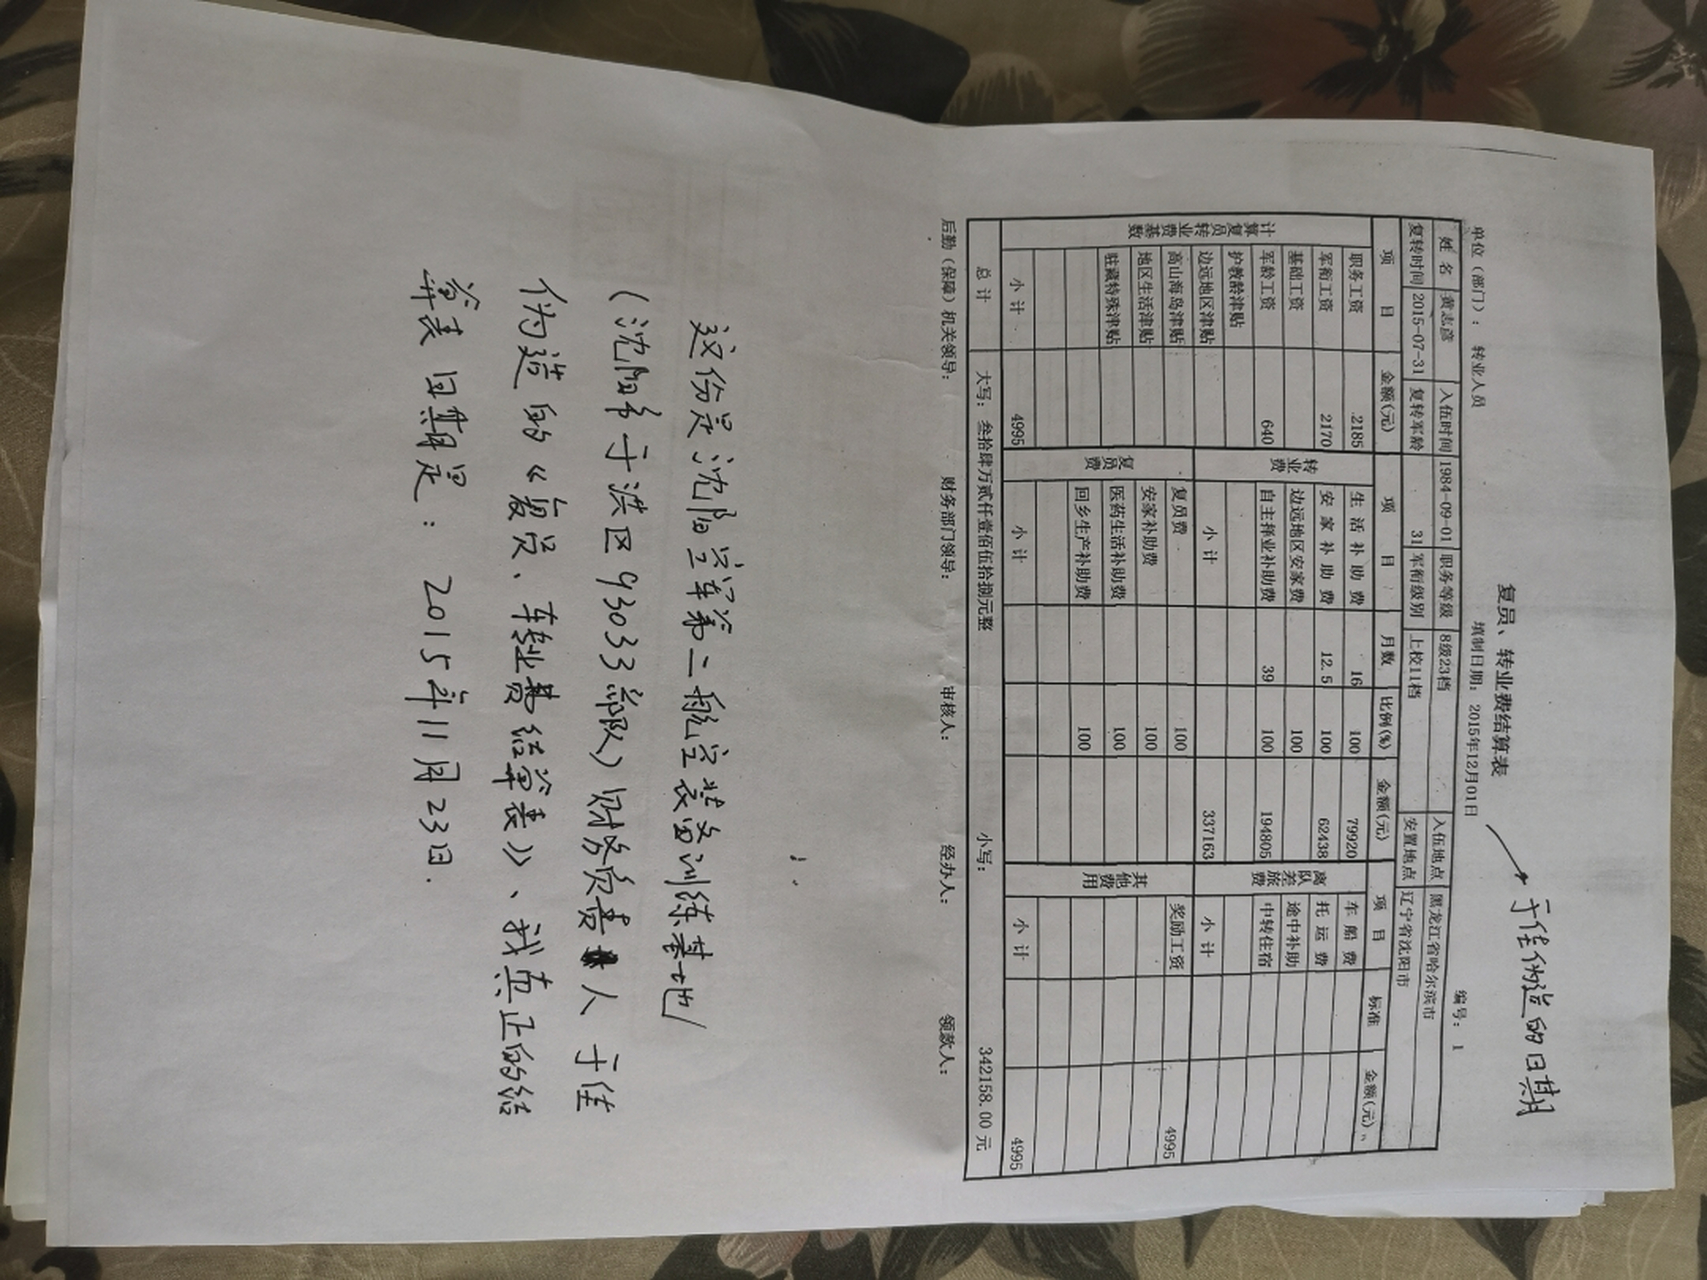 复员、转业费结算表
填制日期: 2015年12月01日
于佳伪造的日期
单位（部门）： 转业人员
编号： 1
姓 名 黄志彦 入伍时间 1984-09-01 职务等级 8级23档 入伍地点 黑龙江省哈尔滨市
复转时间 2015-07-31 复转军龄 31 军衔级别 上校11档 安置地点 辽宁省沈阳市
项 目 金额(元) 项 目 月数 比例(%) 金额(元) 项 目 标准 金额(元)
计算复员转业费基数
职务工资 2185
军衔工资 2170
基础工资
军龄工资 640
护教龄津贴
边远地区津贴
高山海岛津贴
地区生活津贴
驻藏特殊津贴
小 计 4995
转业费
生活补助费 16 100 79920
安家补助费 12.5 100 62438
边远地区安家费 100
自主择业补助费 39 100 194805
小 计 337163
复员费
复员费 100
安家补助费 100
医药生活补助费 100
回乡生产补助费 100
小 计
离队差旅费
车船费
托运费
途中补助
中转住宿
小 计
其他费用
奖励工资 4995
小 计 4995
总 计 大写： 叁拾肆万贰仟壹佰伍拾捌元整 小写： 342158.00 元
后勤（保障）机关领导： 财务部门领导： 审核人： 经办人： 领款人：
这份是沈阳空军第二航空装备训练基地
（沈阳市于洪区93033部队）财务负责人于佳
伪造的《复员、转业费结算表》、我真正的结
算表日期是：2015年11月23日.